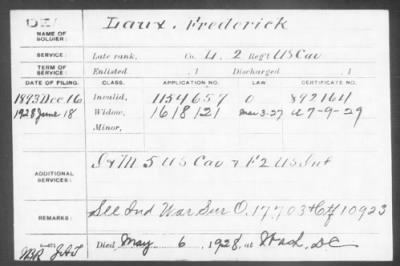 Laux, Frederick
NAME OF SOLDIER:
SERVICE: Late rank, Co. L, 2 Reg't US Cav
TERM OF SERVICE: Enlisted , 1 Discharged , 1
DATE OF FILING. CLASS. APPLICATION NO. LAW. CERTIFICATE NO.
1893 Dec 16 Invalid, 1154657 O 892164
1928 June 18 Widow, 1618121 Mar 3-27 A 7-9-29
Minor,
ADDITIONAL SERVICES: I & M 5 US Cav & F 2 US Inf
REMARKS: See Ind War Sur O. 17703 + Ctf 10923
Died May 6, 1928, at Wash, DC